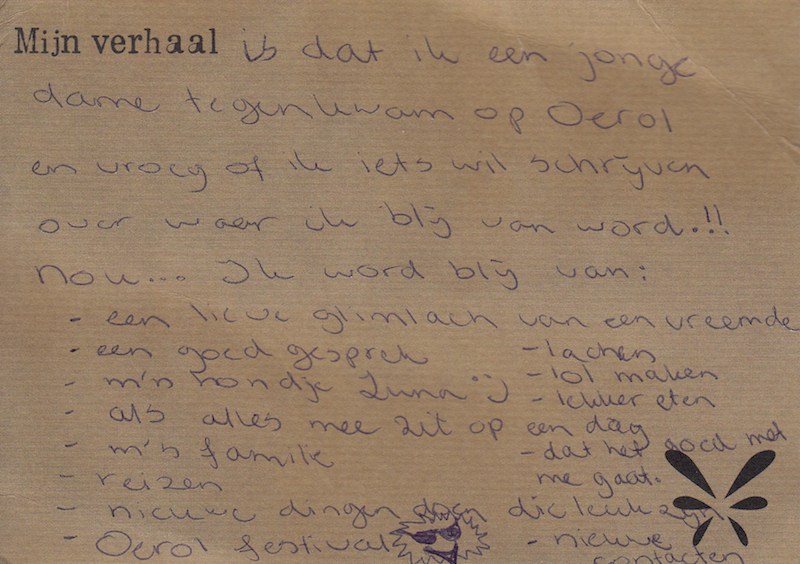 Mijn verhaal is dat ik een jonge
dame tegenkwam op Oerol
en vroeg of ik iets wil schrijven
over waar ik blij van word.!!
Nou... Ik word blij van:
- een lieve glimlach van een vreemde
- een goed gesprek
- lachen
- m'n hondje Luna :)
- lol maken
- lekker eten
- als alles mee zit op een dag
- m'n familie
- dat het goed met
me gaat.
- reizen
- nieuwe dingen doen die leuk zijn
- Oerol festival
- nieuwe
contacten